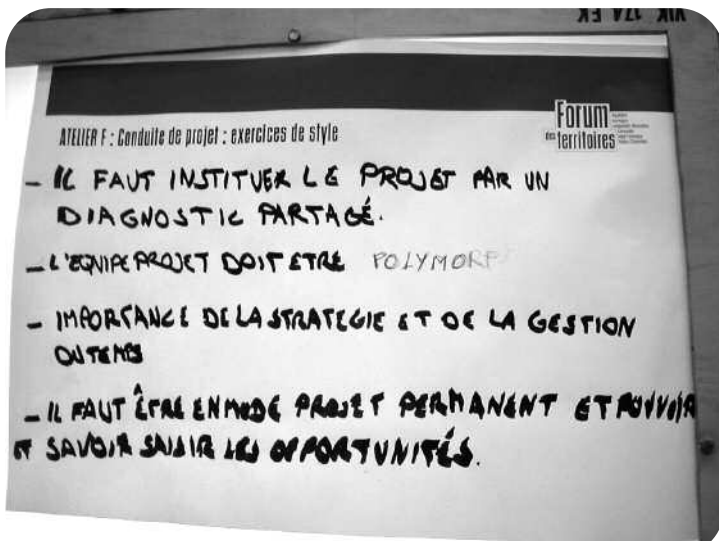 ATELIER F : Conduite de projet : exercices de style
Forum
des territoires
- IL FAUT INSTITUER LE PROJET PAR UN
DIAGNOSTIC PARTAGÉ.
- L'EQUIPE PROJET DOIT ETRE POLYMORP
- IMPORTANCE DE LA STRATEGIE ET DE LA GESTION
DU TEMPS
- IL FAUT ÊTRE EN MODE PROJET PERMANENT ET POUVOIR
ET SAVOIR SAISIR LES OPPORTUNITÉS.